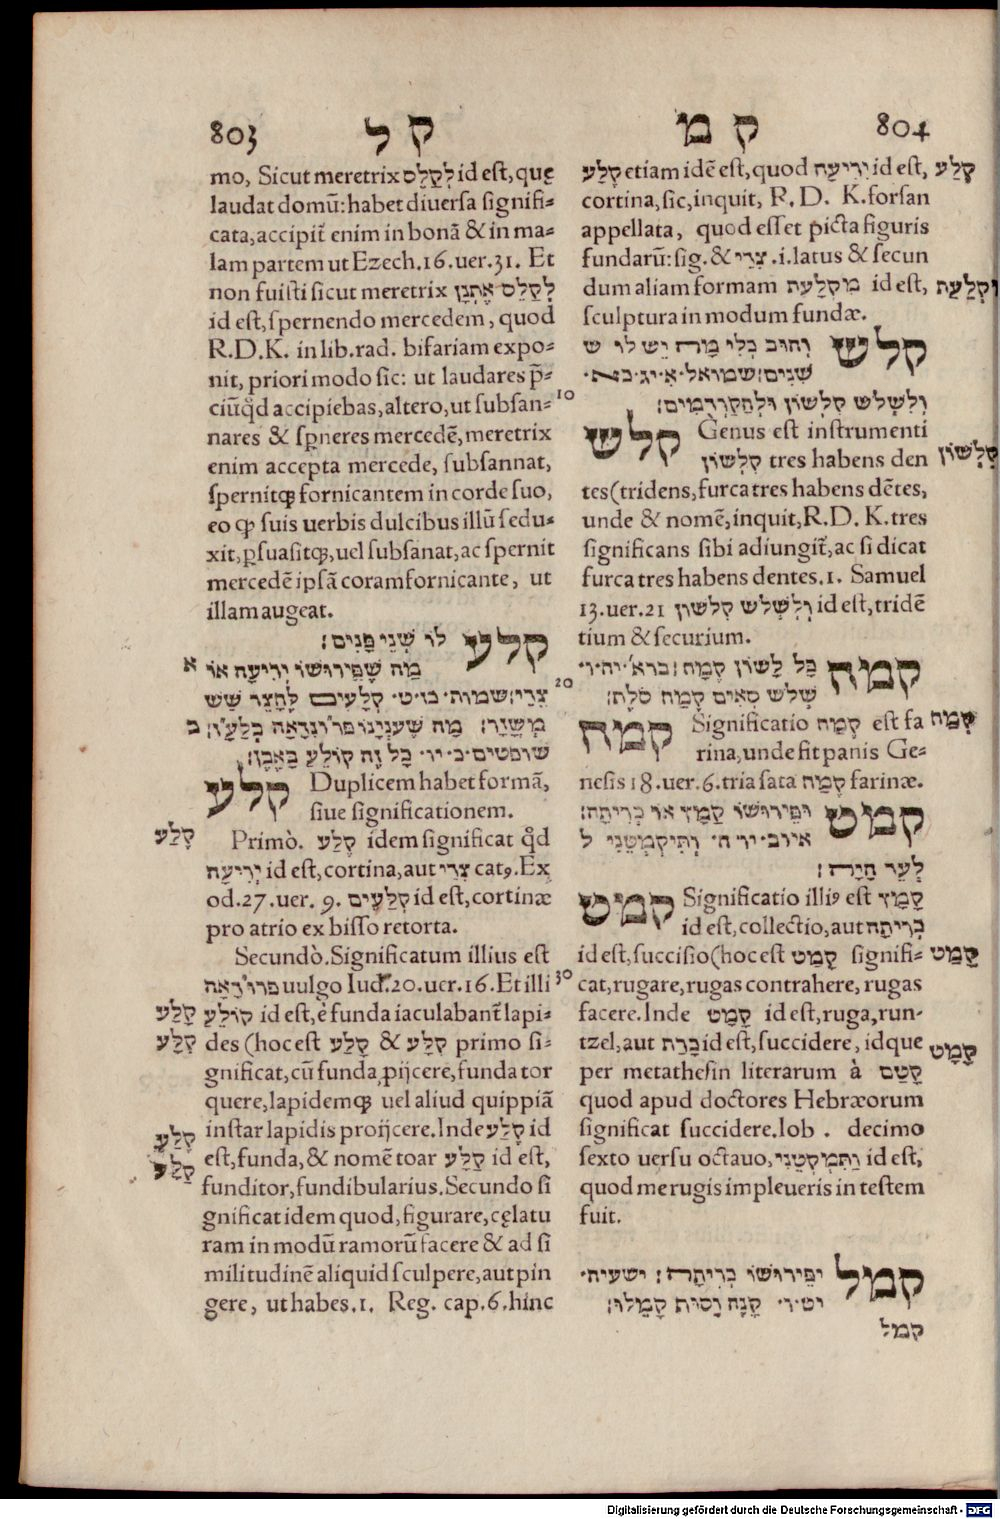 803 ק ל
mo, Sicut meretrix לְקַלֵס id est, quę
laudat domũ: habet diuersa signifi-
cata, accipit̃ enim in bonã & in ma-
lam partem ut Ezech.16.uer.31. Et
non fuisti sicut meretrix לְקַלֵס אֶתְנָן
id est, spernendo mercedem, quod
R.D.K. in lib. rad. bifariam expo-
nit, priori modo sic: ut laudares p̃-
ciũ q̃d accipiebas, altero, ut subsan-
nares & sperneres mercedẽ, meretrix
enim accepta mercede, subsannat,
spernitq; fornicantem in corde suo,
eo q suis uerbis dulcibus illũ sedu-
xit, psuasitq;, uel subsanat, ac spernit
mercedẽ ipsã coram fornicante, ut
illam augeat.
קלע לו שְׁנֵי פָּנִים:
א מַה שֶׁפֵּירוּשׁוֹ יְרִיעָה אוֹ
צְרִי: שמות כז ט קְלָעִים לֶחָצֵר שֵׁשׁ
מָשְׁזָר: מַה שֶׁעִנְיָנוֹ פרוֹנְדָאה בְּלַעַז: ב
שופטים כ יו כָּל זֶה קוֹלֵעַ בָּאֶבֶן:
קלע Duplicem habet formã,
siue significationem.
קֶלַע Primò. קֶלַע idem significat q̃d
יְרִיעָה id est, cortina, aut צְרִי cat9. Ex
od.27.uer.9. קְלָעִים id est, cortinæ
pro atrio ex bisso retorta.
Secundò. Significatum illius est
uulgo Iud.20.uer.16. Et illi
קָלַע קוֹלֵעַ id est, è funda iaculabant̃ lapi-
קִלַּע des (hoc est קָלַע & קִלַּע primo si-
gnificat, cũ funda pijcere, funda tor
quere, lapidemq; uel aliud quippiã
קֶלַע instar lapidis proijcere. Inde קֶלַע id
קַלָּע est, funda, & nomẽ toar קַלָּע id est,
funditor, fundibularius. Secundo si
gnificat idem quod, figurare, cęlatu
ram in modũ ramorũ facere & ad si
militudinẽ aliquid sculpere, aut pin
gere, ut habes.1. Reg. cap.6. hinc
ק מ 804
קֶלַע etiam idẽ est, quod יְרִיעָה id est, קֶלַע
cortina, sic, inquit, R. D. K. forsan
appellata, quod esset picta figuris
fundarũ: sig. & צְרִי .i. latus & secun
dum aliam formam מִקְלַעַת id est, מִקְלַעַת
sculptura in modum fundæ.
קלש וְחוּב כְּלִי מָה יֵשׁ לוֹ ש
שִׁנַּיִם: שמואל א יג כא
וְלִשְׁלֹשׁ קִלְּשׁוֹן וּלְהַקַּרְדֻּמִּים:
10
קלש Genus est instrumenti
קִלְּשׁוֹן tres habens den קִלְּשׁוֹן
tes (tridens, furca tres habens dẽtes,
unde & nomẽ, inquit, R.D. K. tres
significans sibi adiungit̃, ac si dicat
furca tres habens dentes. 1. Samuel
13.uer.21 וְלִשְׁלֹשׁ קִלְּשׁוֹן id est, tridẽ
tium & securium.
קמח כָּל לָשׁוֹן קֶמַח: ברא יח ו
שְׁלֹשׁ סְאִים קֶמַח סֹלֶת:
20
קמח Significatio קֶמַח est fa קֶמַח
rina, unde fit panis Ge-
nesis 18.uer.6. tria sata קֶמַח farinæ.
קמט וּפֵירוּשׁוֹ קֹמֶץ אוֹ כְּרִיתָה:
איוב יו ח וַתִּקְמְטֵנִי ל
לְעֵד הָיָה:
קמט Significatio illi9 est קָמַץ
id est, collectio, aut כְּרִיתָה
id est, succisio (hoc est קָמַט signifi- קָמַט
30
cat, rugare, rugas contrahere, rugas
facere. Inde קֶמֶט id est, ruga, run-
tzel, aut כָּרַת id est, succidere, idque קֶמֶט
per metathesin literarum à קָטַם
quod apud doctores Hebræorum
significat succidere. Iob . decimo
sexto uersu octauo, וַתִּקְמְטֵנִי id est,
quod me rugis impleueris in testem
fuit.
קמל וּפֵירוּשׁוֹ כְּרִיתָה: ישעיה
יט ו קָנֶה וָסוּף קָמֵלוּ:
קמל
Digitalisierung gefördert durch die Deutsche Forschungsgemeinschaft - DFG